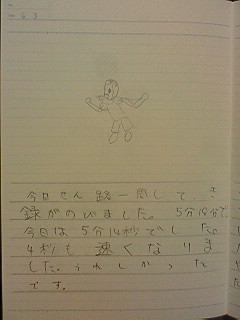 今日せん路一周して、き
録がのびました。5分18分で
今日は5分14秒でした。
4秒も速くなりま
した。うれしかった
です。